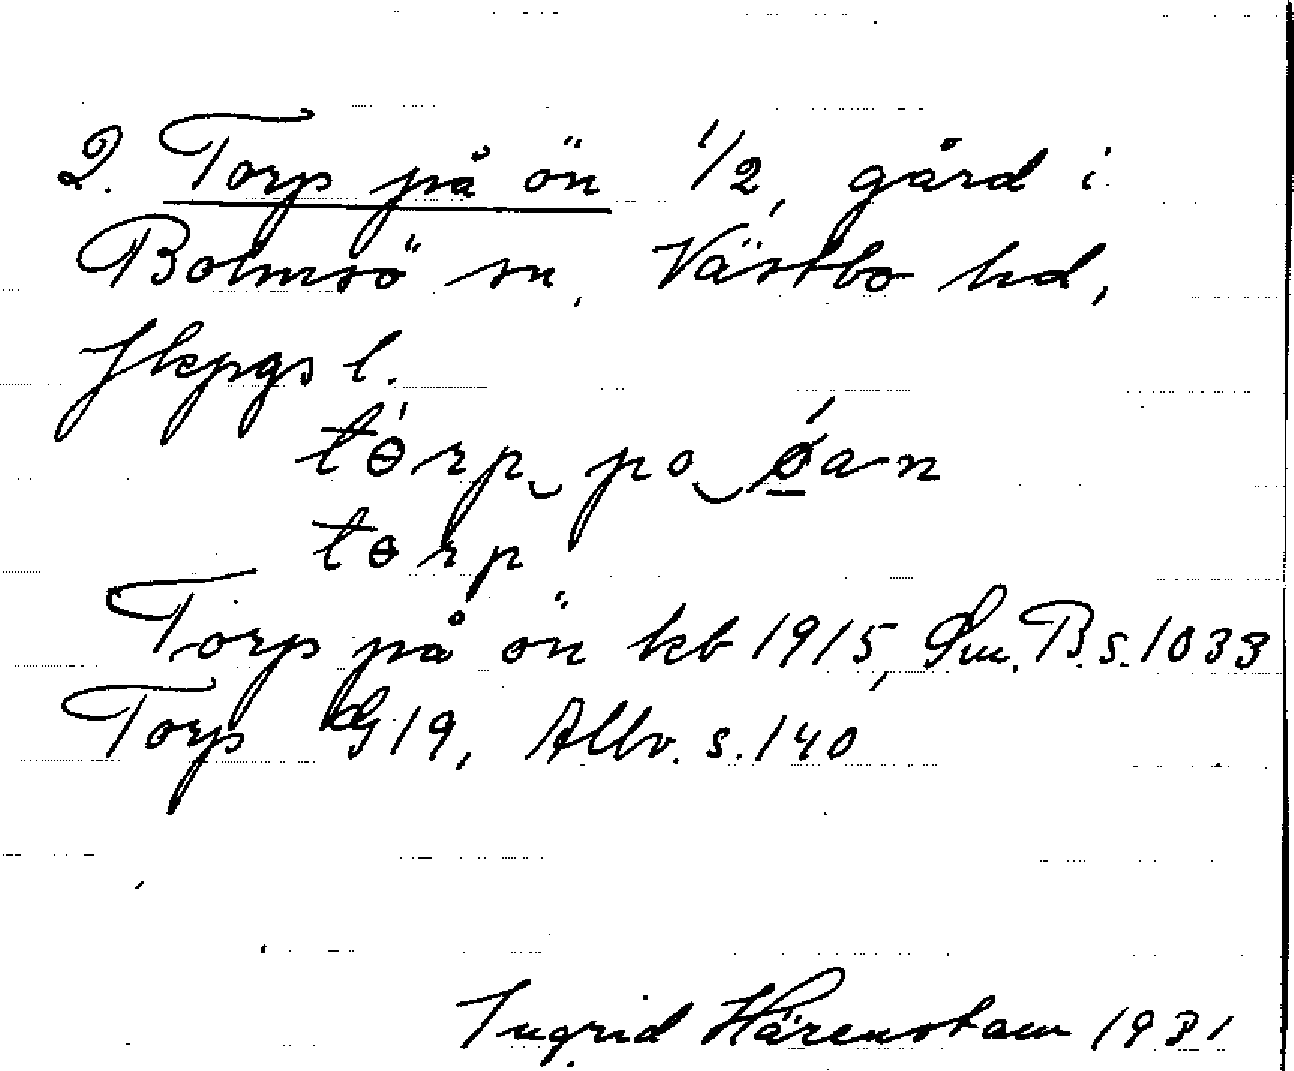 2. Torp på ön 1/2, gård i
Bolmsö sn, Västbo hd,
Jkpgs l.
tɵ́rp‿po‿ǿan
tɵrp
Torp på ön kb 1915, Sm. B. s. 1033
Torp G 19, Allv. s. 140
Ingrid Härenstam 1931